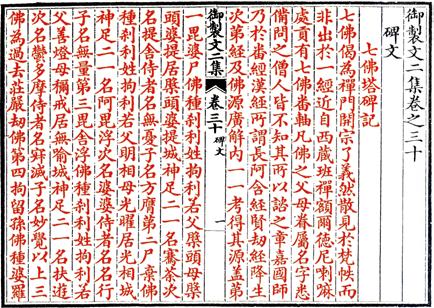 御製文二集卷之三十
碑文
七佛塔碑記
七佛偈為禪門開宗了義然散見於梵帙而
非出於一經近自西藏班禪額爾德尼喇嘛
處貢有七佛番軸凡佛之父母眷屬名字悉
備問之僧人皆不知其所以之章嘉國師
乃於番經漢經所謂長阿含經賢劫經降生
次第經及佛源廣解內一一考得其源蓋第
御製文二集 卷三十 碑文 一
一毘婆尸佛種剎利姓拘利若父槃頭母槃
頭婆提居槃頭婆提城神足二一名騫茶次
名提舍侍者名無憂子名方膺第二尸棄佛
種剎利姓拘利若父明相母光曜居光相城
神足二一名阿毘浮次名婆婆侍者名名行
子名無量第三毘舍浮佛種剎利姓拘利若
父善燈母稱戒居無喻城神足二一名扶遊
次名鬱多摩侍者名寂滅子名妙覺以上三
佛為過去莊嚴劫佛第四拘留孫佛種婆羅